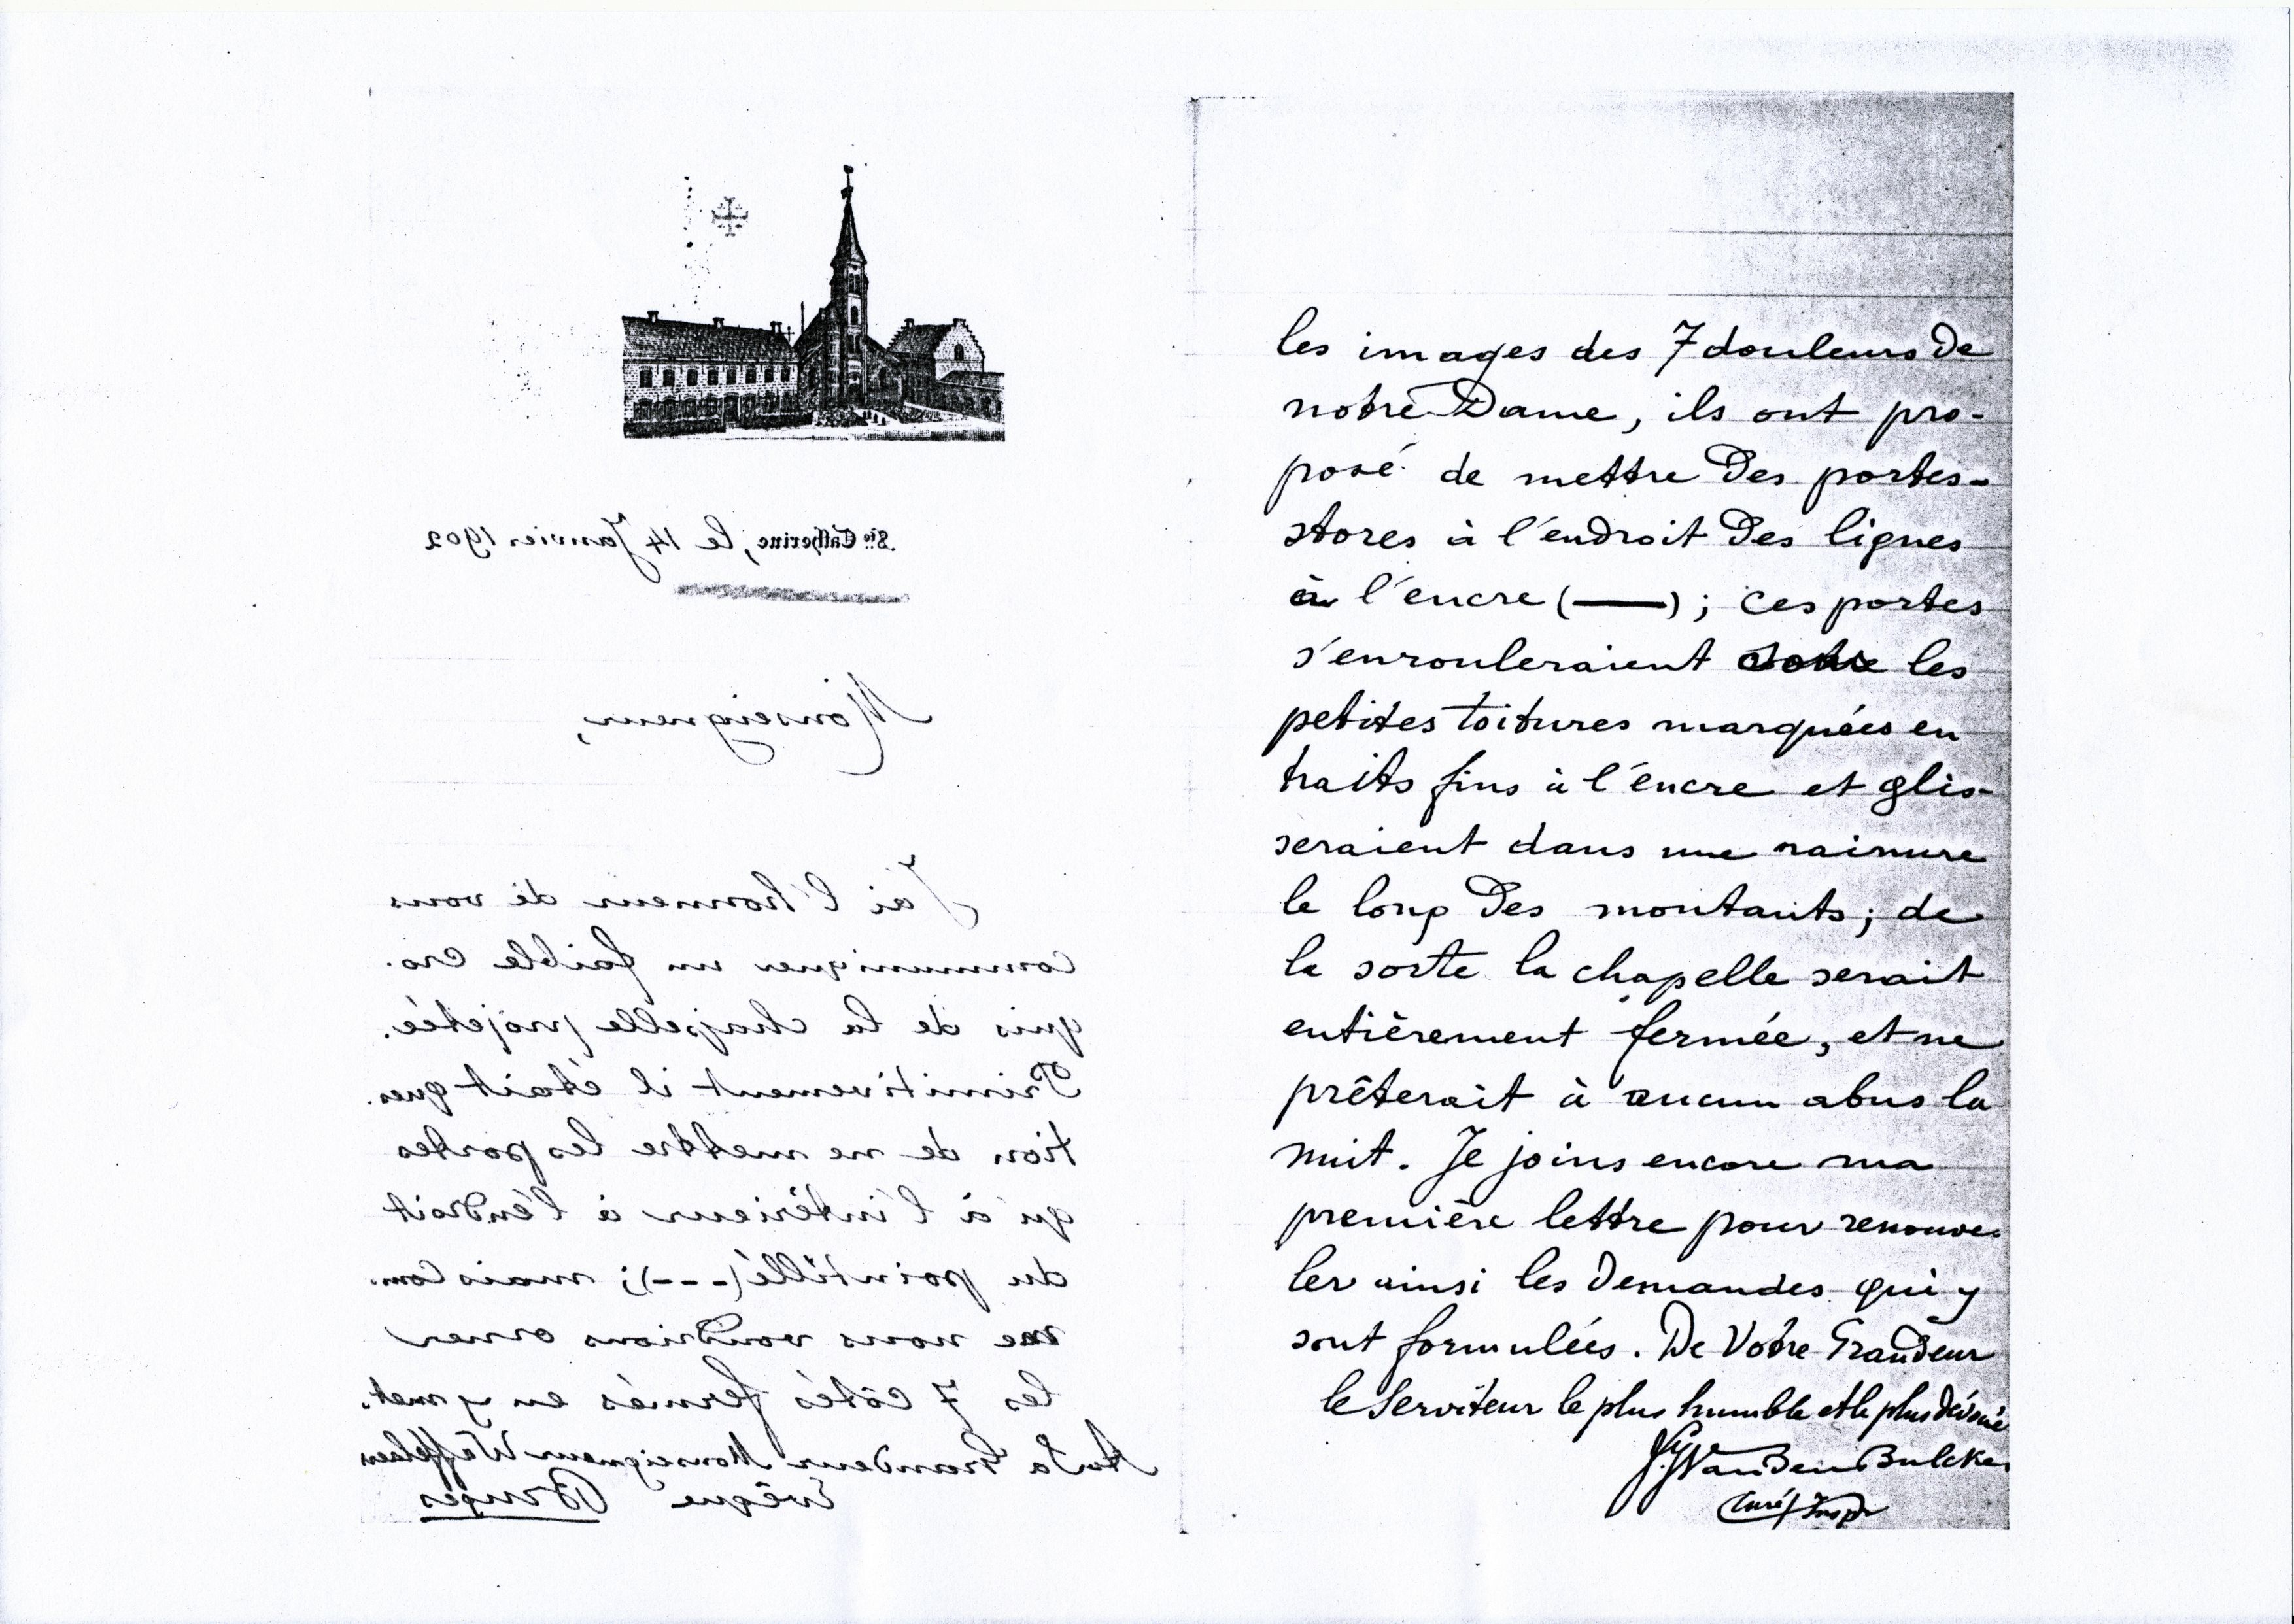 Ste Catherine, le 14 Janvier 1902
Monseigneur,
J'ai l'honneur de vous
communiquer un faible cro-
quis de la chapelle projetée.
Primitivement il était ques-
tion de ne mettre les portes
qu'à l'intérieur à l'endroit
du pointillé (---); mais com-
me nous voudrions orner
les 7 côtés fermés en y met-
A Sa Grandeur Monseigneur Waffelaert
Evêque Bruges
les images des 7 douleurs de
notre Dame, ils ont pro-
posé de mettre des portes-
stores à l'endroit des lignes
à l'encre (—); ces portes
s'enrouleraient les
petites toitures marquées en
traits fins à l'encre et glis-
seraient dans une rainure
le long des montants; de
la sorte la chapelle serait
entièrement fermée, et ne
prêterait à aucun abus la
nuit. Je joins encore ma
première lettre pour renouve-
ler ainsi les demandes qui y
sont formulées. De Votre Grandeur
le Serviteur le plus humble et le plus dévoué
VandenBulcke
Curé